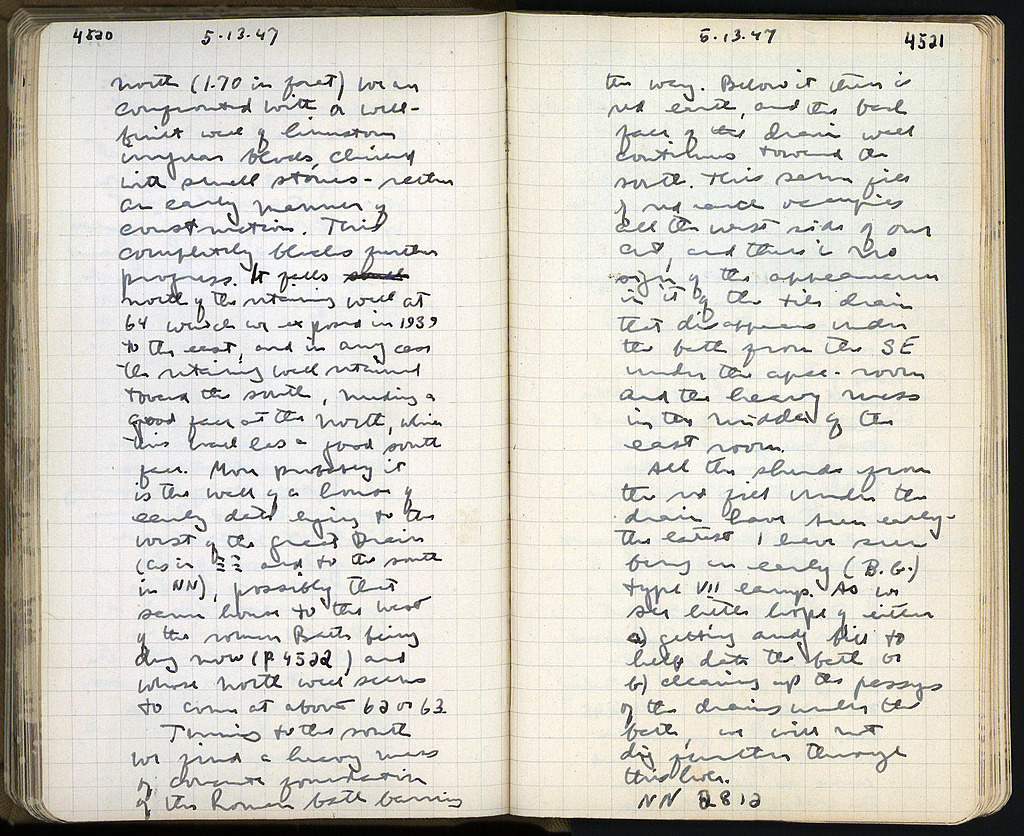 4520 5·13·47
north (1.70 in fact) we are
confronted with a well-
built wall of limestone
irregular blocks, chinked
with small stones - rather
an early manner of
construction. This
completely blocks further
progress. It falls south
north of the retaining wall at
64 which we exposed in 1939
to the east, and in any case
the retaining wall retained
toward the south, needing a
good face at the north, while
this wall has a good south
face. More probably it
is the wall of a house of
early date lying to the
west of the Great Drain
(as in ΞΞ and to the south
in NN), possibly that
same house to the west
of the Roman Bath being
dug now (p 4522) and
whose north wall seems
to come at about 62 or 63.
Turning to the south
we find a heavy mass
of concrete foundation
of the Roman bath barring
5·13·47 4521
the way. Below it there is
red earth, and the back
face of the drain wall
continues toward the
south. This same fill
of red earth occupies
all the west side of our
cut, and there is no
sign of the appearance
in it of the tile drain
that disappears under
the bath from the SE
under the apse-room
and the heavy mass
in the middle of the
east room.
All the sherds from
the red fill under the
drain have been early -
the latest I have seen
being an early (B.G.)
type VII lamp. As we
see little hope of either
a) getting any fill to
help date the bath or
b) clearing up the passage
of the drains under the
bath, we will not
dig further through
this here.
NN 2812